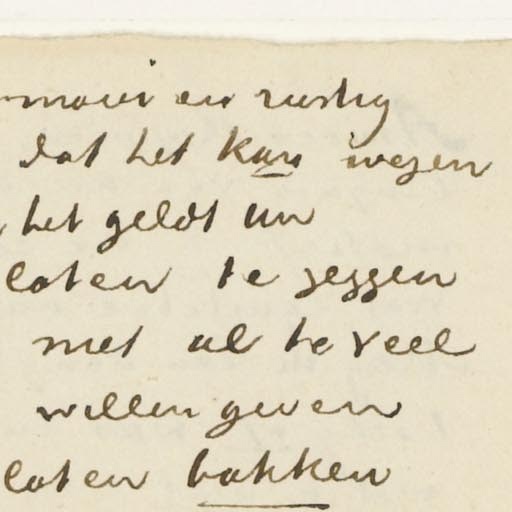 mooi en rustig
dat het kan wezen
het geldt un
laten te zeggen
niet al te veel
willen geven
laten bakken